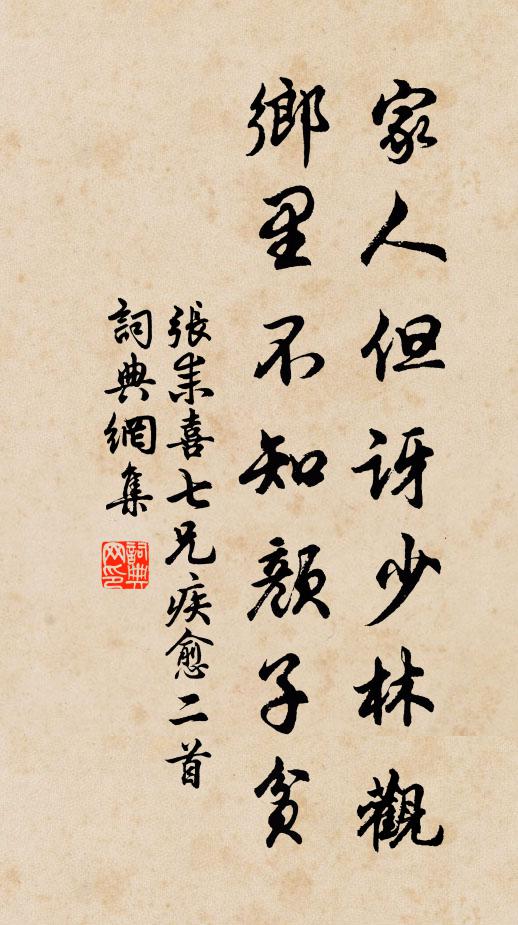 家人但訝少林觀
鄉里不知顏子貧
張耒喜七兄疾愈二首
詞典網集
詞典网印